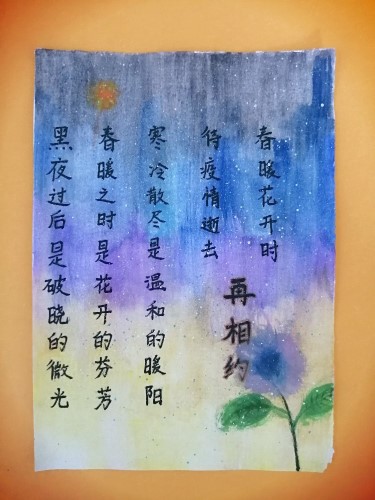 黑夜过后是破晓的微光
春暖之时是花开的芬芳
寒冷散尽是温和的暖阳
待疫情逝去
春暖花开时
再相约